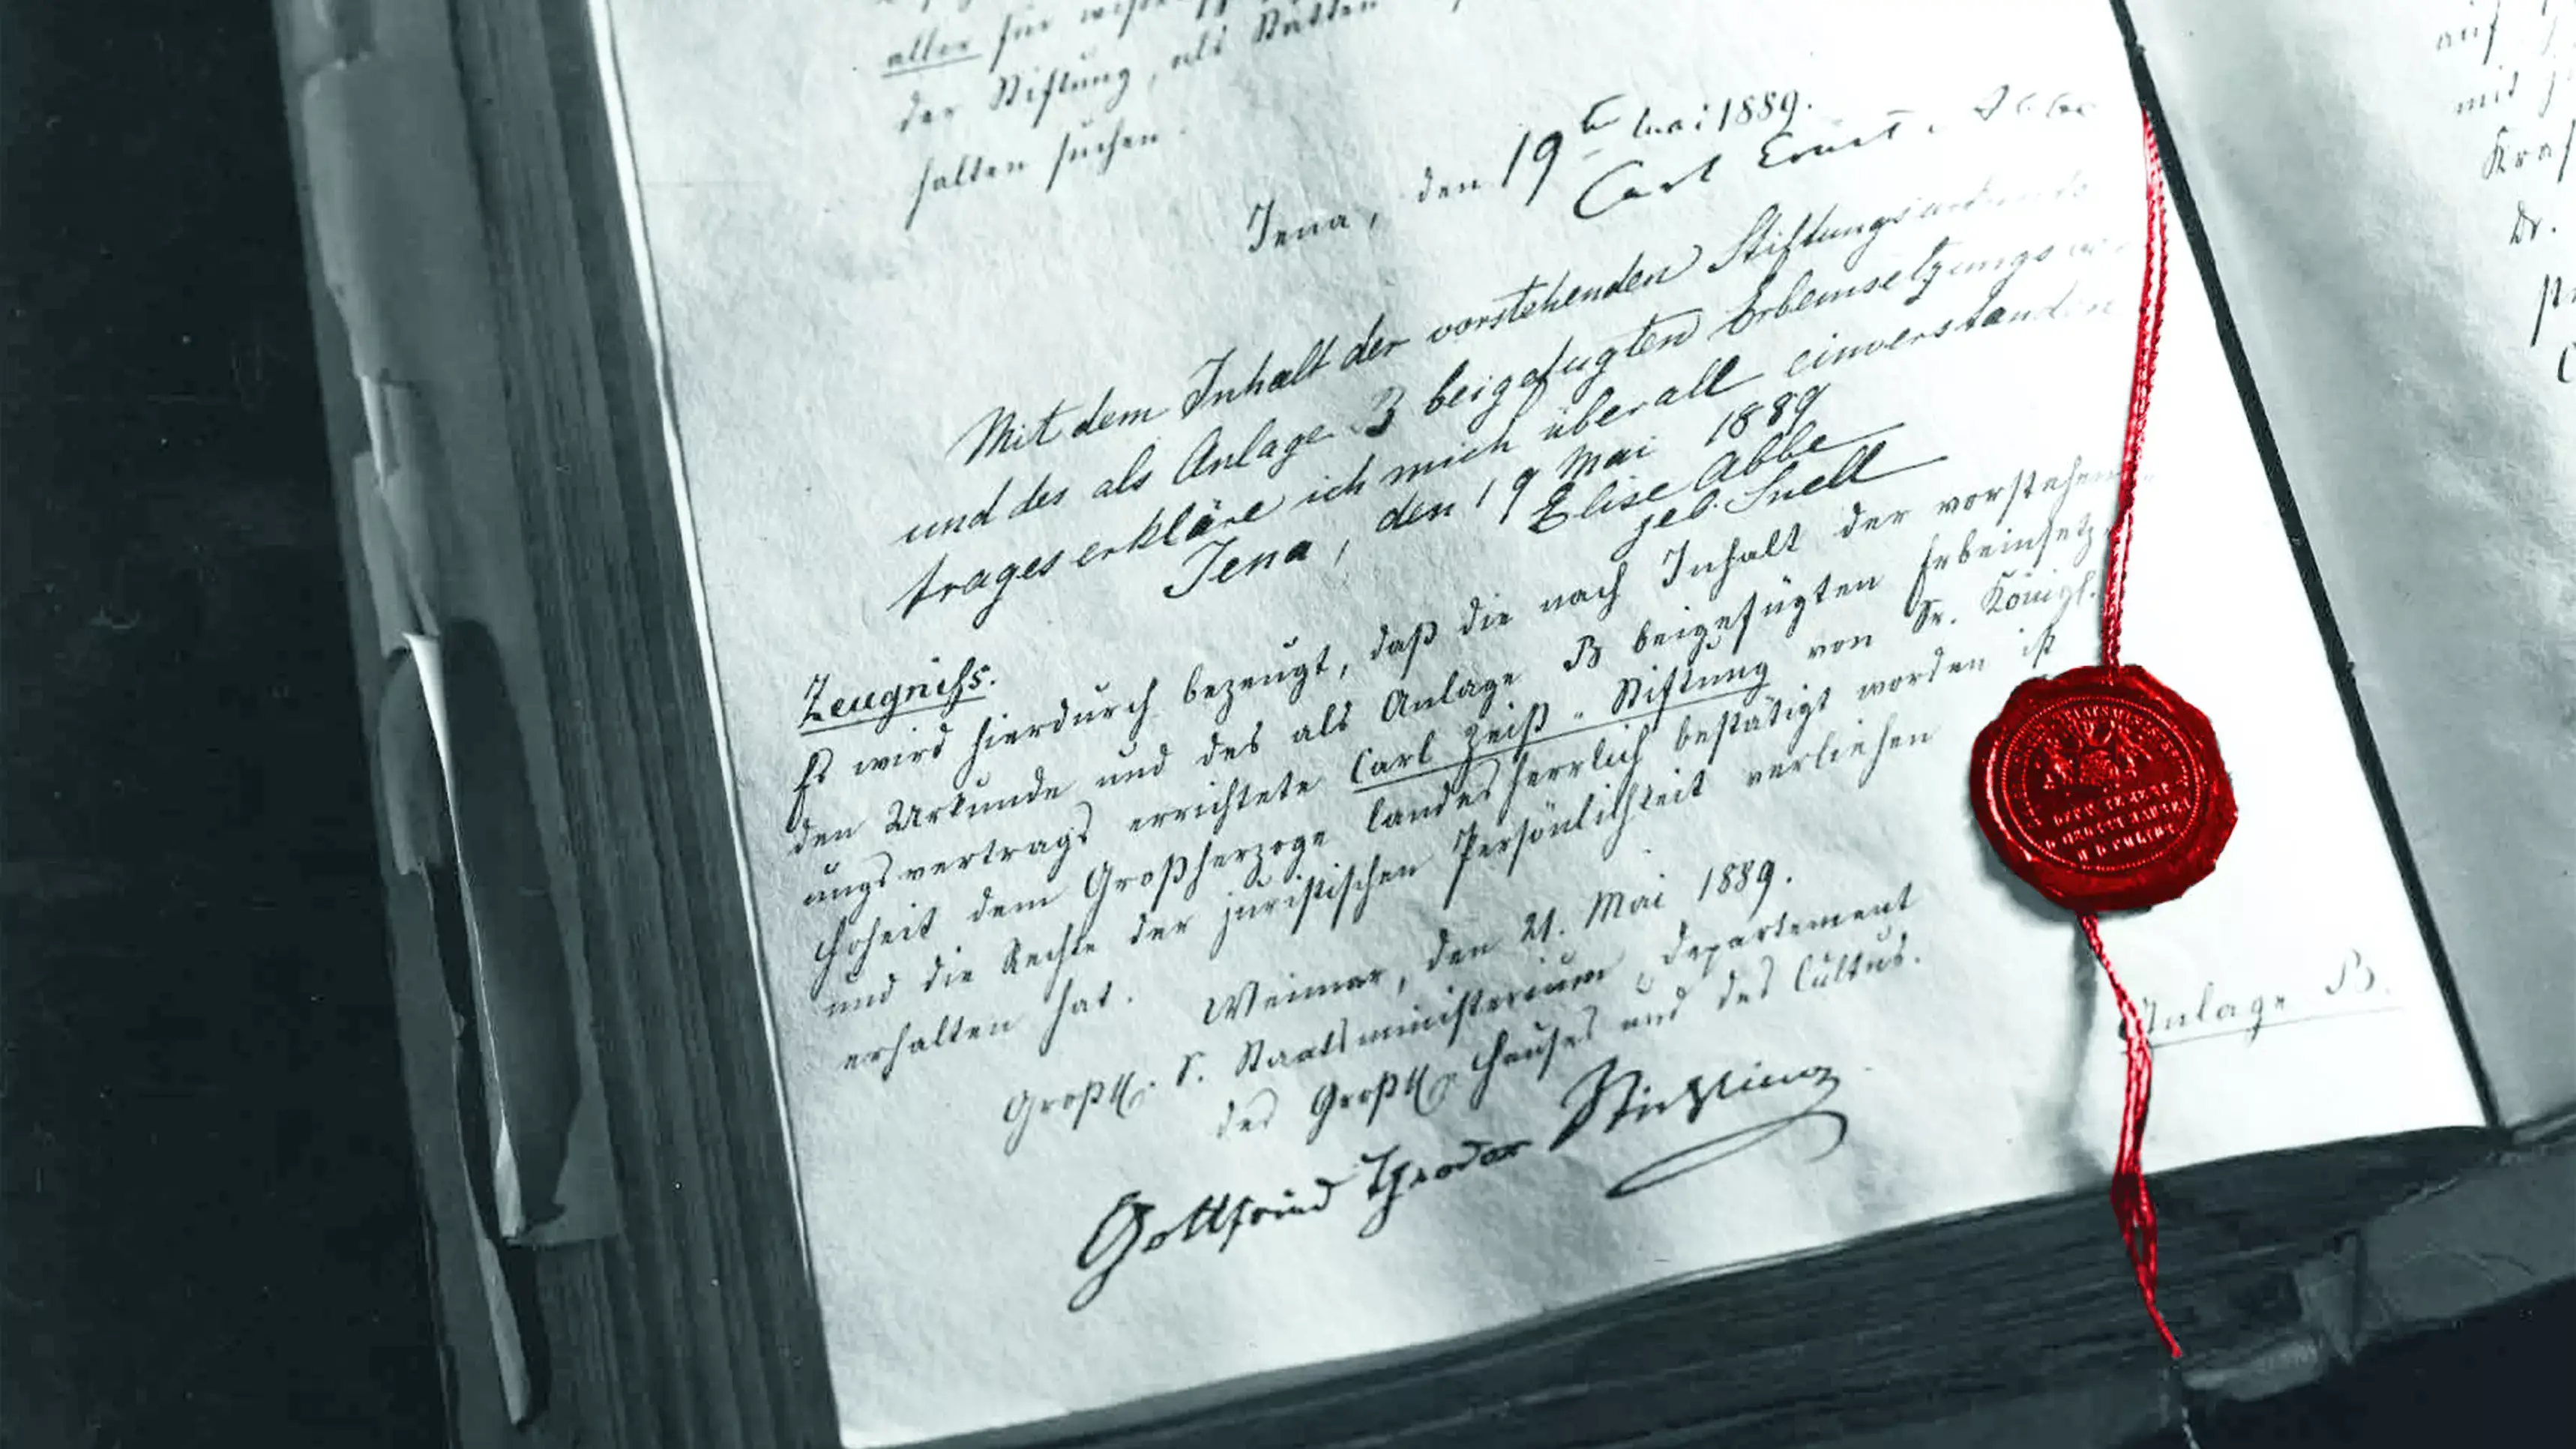 aller für
der Stiftung, als
halten suchen.
Jena, den 19ten Mai 1889.
Carl Ernst Abbe
Mit dem Inhalt der vorstehenden Stiftungsurkunde
und des als Anlage B beigefügten Erbeinsetzungsver
trages erkläre ich mich überall einverstanden
Jena, den 19 Mai 1889
Elise Abbe
geb. Snell
Zeugniß.
Es wird hierdurch bezeugt, daß die nach Inhalt der vorstehen
den Urkunde und des als Anlage B beigefügten Erbeinsetz
ungsvertrags errichtete Carl Zeiß-Stiftung von Sr. Königl.
Hoheit dem Großherzoge landesherrlich bestätigt worden ist
und die Rechte der juristischen Persönlichkeit verliehen
erhalten hat.
Weimar, den 21. Mai 1889.
Großh. S. Staatsministerium, Departement
des Großh. Hauses und des Cultus.
Gottfried Theodor Stichling
Anlage B.
auf
mit
Dr.